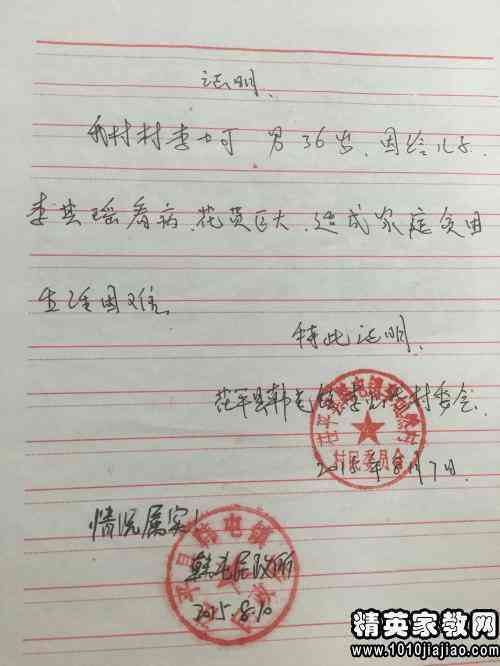 证明
我村村李士可 男 36岁、因给儿子
李其瑶看病,花费巨大,造成家庭负
生活困难
特此证明
荏平县韩屯镇李 村委会
村民委员会
2015年8月7日
情况属实!
韩屯民政所
2015.8.10
精英家教网
www.1010jiajiao.com